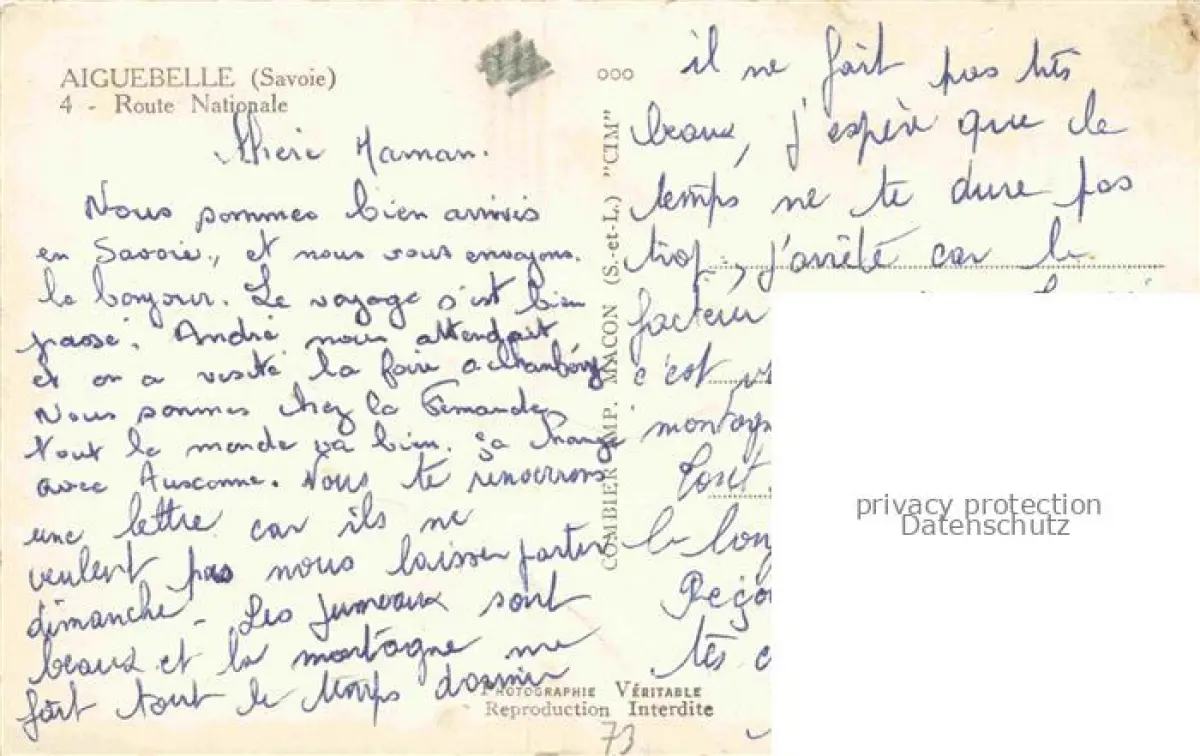 AIGUEBELLE (Savoie)
4 - Route Nationale
Chère Maman.
Nous sommes bien arrivés
en Savoie, et nous vous envoyons
le bonjour. Le voyage s'est bien
passé, André nous attendait
et on a visité la foire a Chambéry
Nous sommes chez la Fernande
tout le monde va bien. ça change
avec Auxonne. Nous te renverrons
une lettre car ils ne
veulent pas nous laisser partir
dimanche. Les jumeaux sont
beaux et la montagne me
fait tout le temps dormir
il ne fait pas très
beaux, j'espère que le
temps ne te dure pas
trop, j'arrête car le
facteur
c'est
montagn
le bon
Reço
tes
COMBIER IMP. MACON (S.-et-L.) "CIM"
PHOTOGRAPHIE VÉRITABLE
Reproduction Interdite
73
privacy protection
Datenschutz